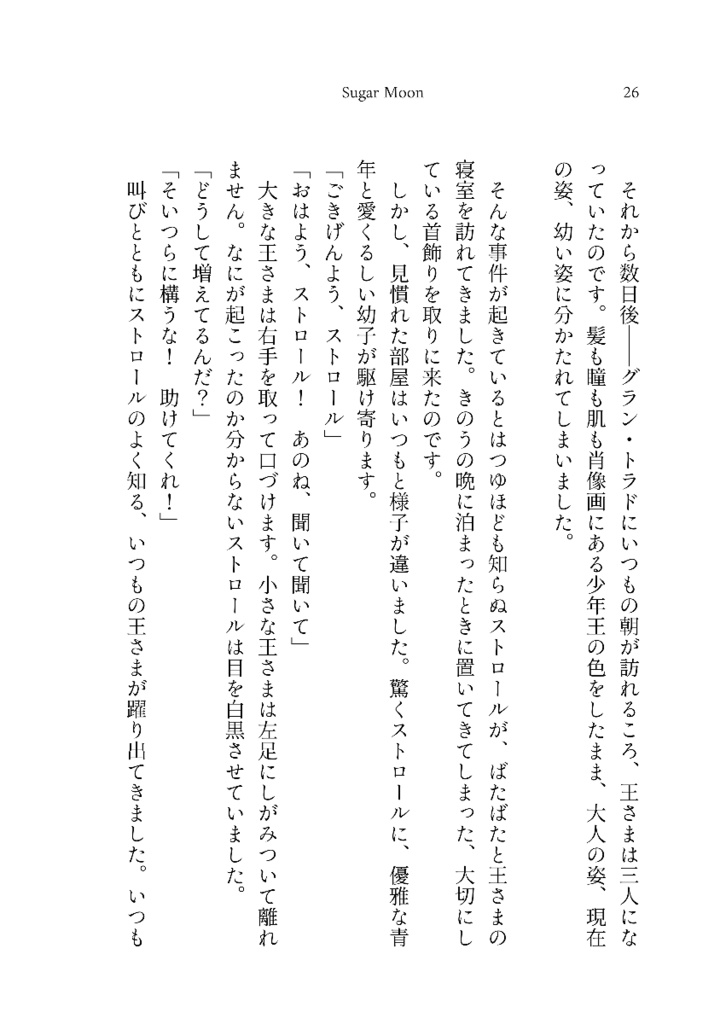 Sugar Moon
26
　それから数日後――グラン・トラドにいつもの朝が訪れるころ、王さまは三人にな
っていたのです。髪も瞳も肌も肖像画にある少年王の色をしたまま、大人の姿、現在
の姿、幼い姿に分かたれてしまいました。
　そんな事件が起きているとはつゆほども知らぬストロールが、ばたばたと王さまの
寝室を訪れてきました。きのうの晩に泊まったときに置いてきてしまった、大切にし
ている首飾りを取りに来たのです。
　しかし、見慣れた部屋はいつもと様子が違いました。驚くストロールに、優雅な青
年と愛くるしい幼子が駆け寄ります。
「ごきげんよう、ストロール」
「おはよう、ストロール！　あのね、聞いて聞いて」
　大きな王さまは右手を取って口づけます。小さな王さまは左足にしがみついて離れ
ません。なにが起こったのか分からないストロールは目を白黒させていました。
「どうして増えてるんだ？」
「そいつらに構うな！　助けてくれ！」
　叫びとともにストロールのよく知る、いつもの王さまが躍り出てきました。いつも